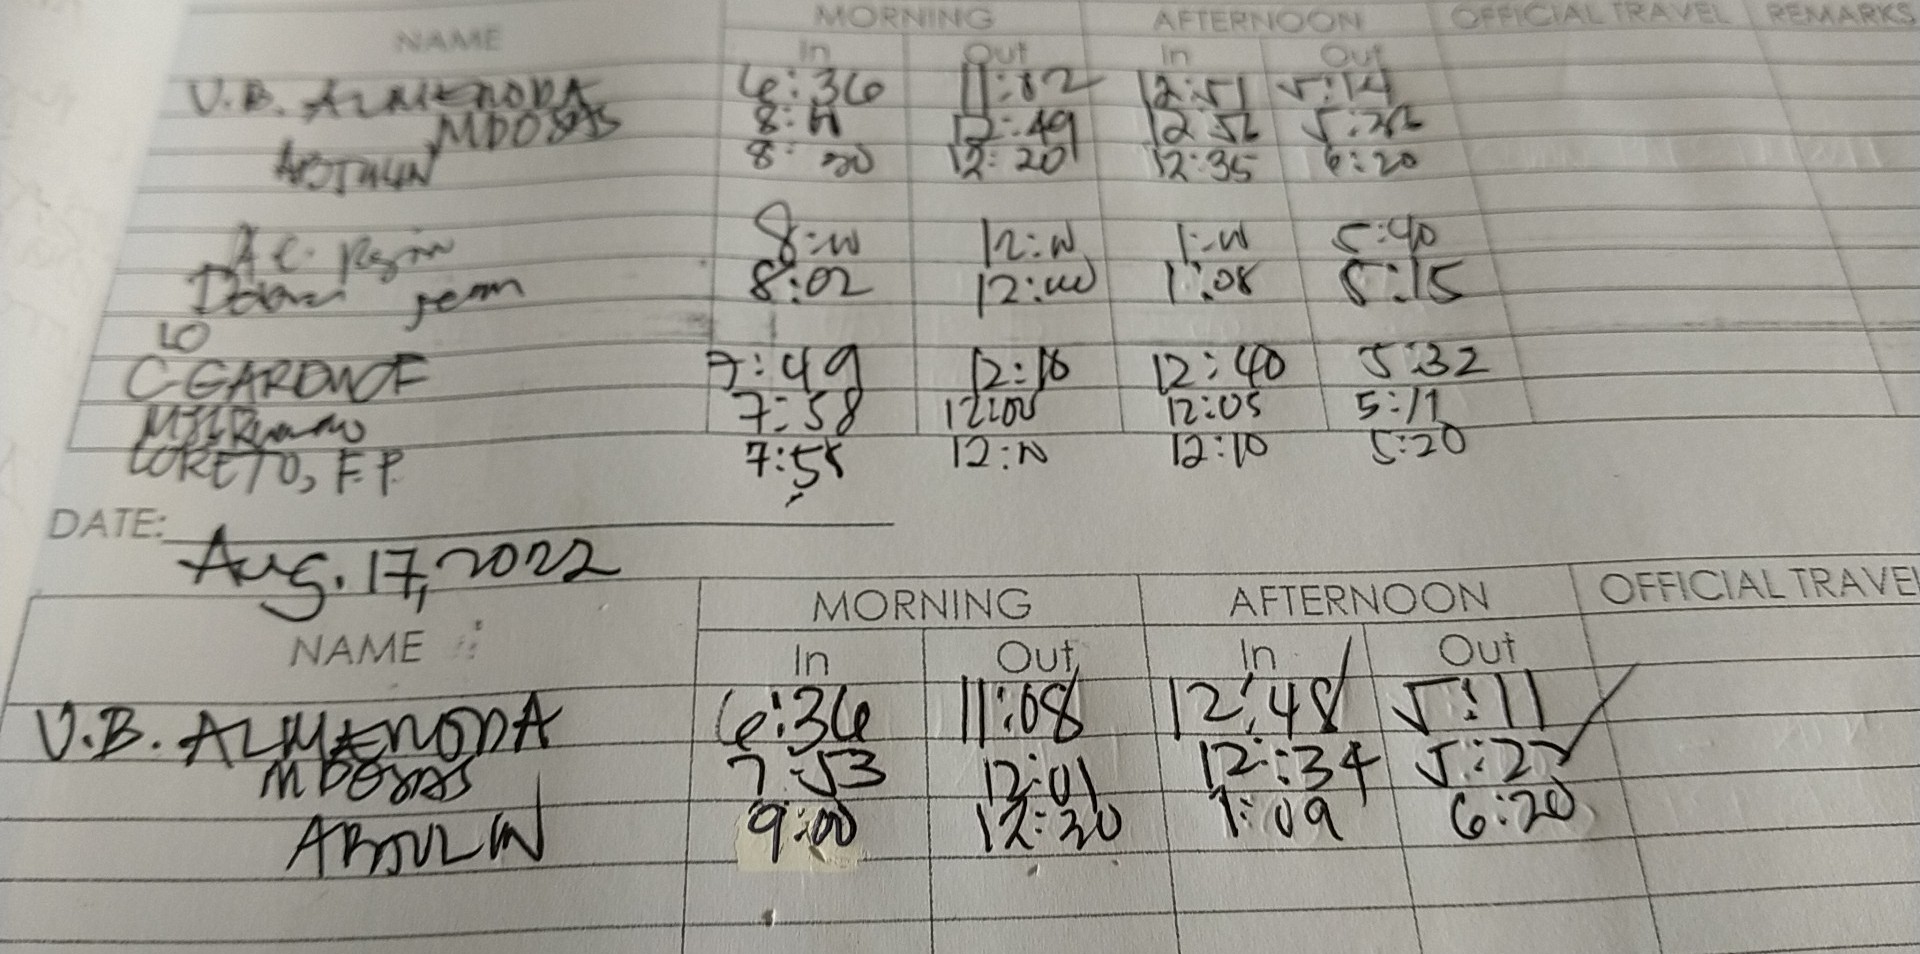 NAME MORNING AFTERNOON OFFICIAL TRAVEL REMARKS
In Out In Out
V.B. ALMENODA 6:36 11:02 12:51 5:14
MDOSAS 8:11 12:49 12:52
ABJULIN 8:20 12:20 12:35 6:20
8:00 12:00 1:00 5:40
8:02 12:00 1:08 5:15
LO
7:49 12:18 12:40 5:32
7:58 12:00 12:05 5:11
LORETO, F.P. 7:58 12:10 12:10 5:20
DATE: Aug. 17, 2022
NAME MORNING AFTERNOON OFFICIAL TRAVEL
In Out In Out
V.B. ALMENODA 6:36 11:08 12:48 5:11
MDOSAS 7:53 12:01 12:34 5:27
ABJULIN 9:00 12:20 1:09 6:20